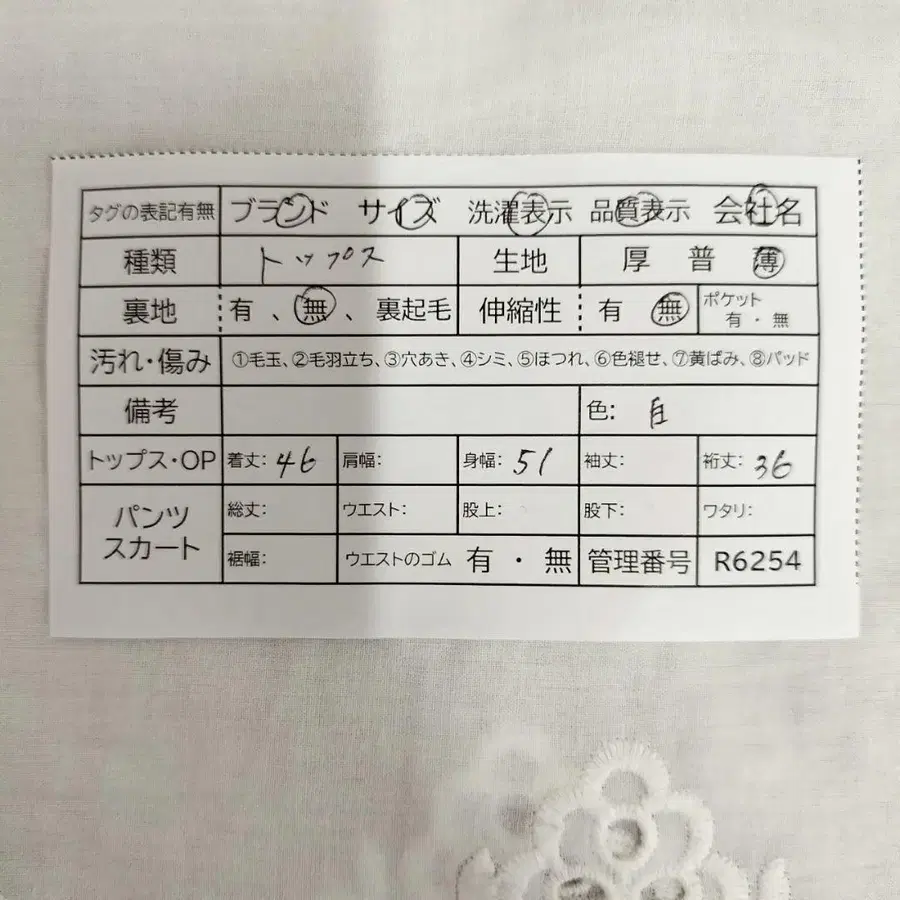 タグの表記有無 ブランド サイズ 洗濯表示 品質表示 会社名
種類 トップス 生地 厚 普 薄
裏地 有、無、裏起毛 伸縮性 有 無 ポケット 有・無
汚れ・傷み ①毛玉、②毛羽立ち、③穴あき、④シミ、⑤ほつれ、⑥色褪せ、⑦黄ばみ、⑧パッド
備考 色: 白
トップス・OP 着丈: 46 肩幅: 身幅: 51 袖丈: 裄丈: 36
パンツ スカート 総丈: ウエスト: 股上: 股下: ワタリ:
裾幅: ウエストのゴム 有・無 管理番号 R6254